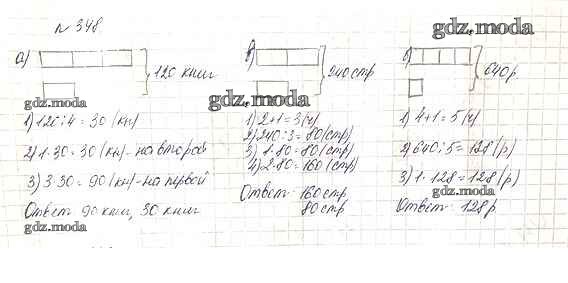 № 348.
gdz.moda
а)
120 книг
gdz.moda
1) 120:4 = 30 (кн)
2) 1·30 = 30 (кн) - на второй
3) 3·30 = 90 (кн) - на первой
Ответ 90 книг, 30 книг
gdz.moda
240 стр
gdz.moda
1) 2+1 = 3 (ч)
2) 240:3 = 80 (стр)
3) 1·80 = 80 (стр)
4) 2·80 = 160 (стр)
Ответ 160 стр
80 стр
gdz.moda
640 р.
1) 4+1 = 5 (ч)
2) 640:5 = 128 (р)
3) 1·128 = 128 (р)
gdz.moda
Ответ 128 р.